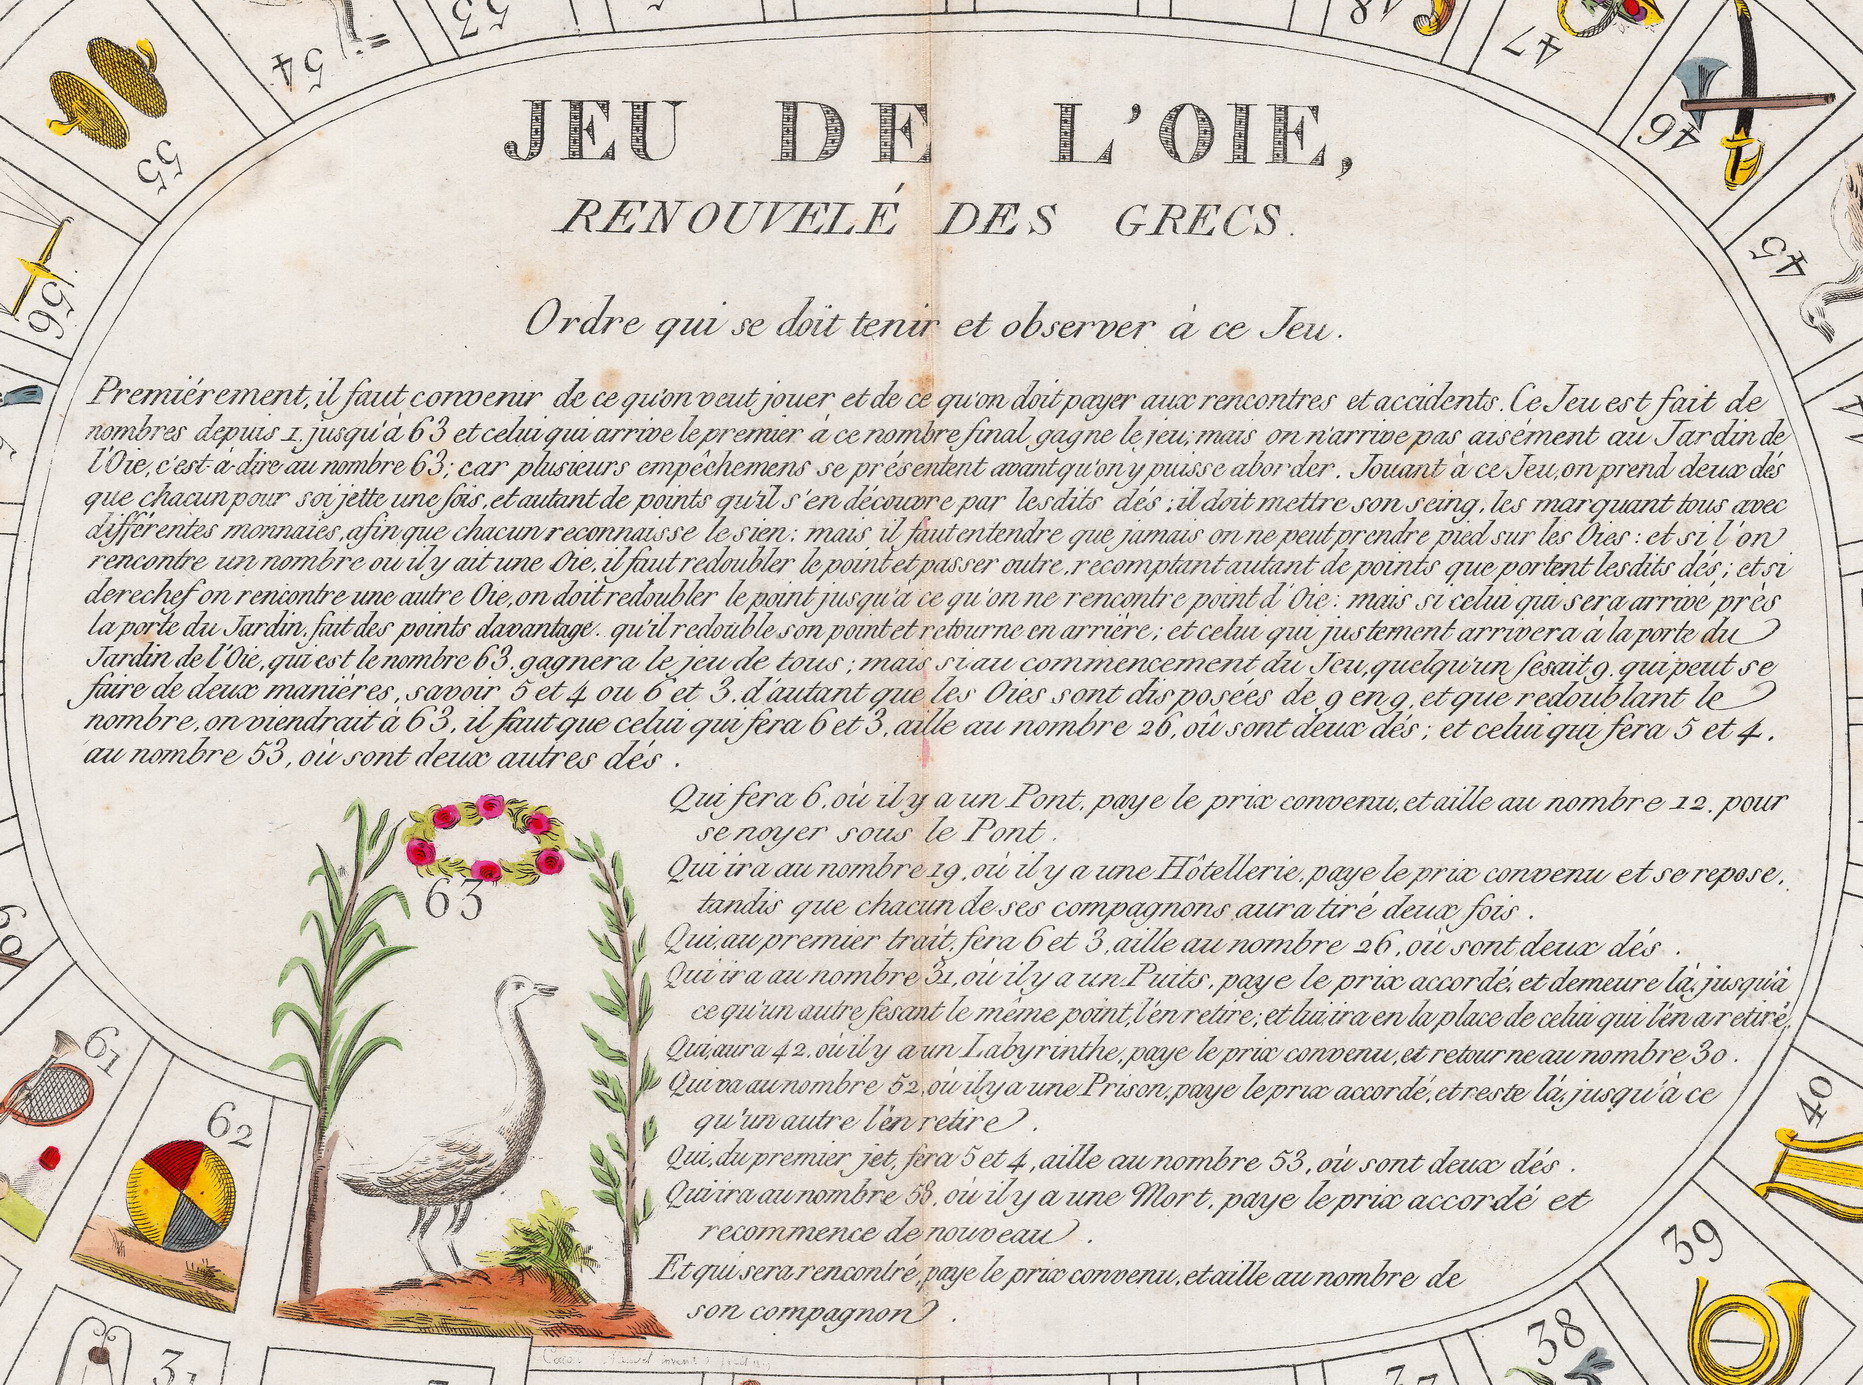 JEU DE L'OIE,
RENOUVELÉ DES GRECS.
Ordre qui se doit tenir et observer à ce Jeu.
Premiérement, il faut convenir de ce qu'on veut jouer et de ce qu'on doit payer aux rencontres et accidents. Ce Jeu est fait de
nombres depuis 1. jusqu'à 63 et celui qui arrive le premier à ce nombre final gagne le jeu; mais on n'arrive pas aisément au Jardin de
l'Oie, c'est-à-dire au nombre 63; car plusieurs empêchemens se présentent avant qu'on y puisse aborder. Jouant à ce Jeu, on prend deux dés
que chacun pour soi jette une fois, et autant de points qu'il s'en découvre par lesdits dés; il doit mettre son seing, les marquant tous avec
différentes monnaies, afin que chacun reconnaisse le sien: mais il faut entendre que jamais on ne peut prendre pied sur les Oies: et si l'on
rencontre un nombre ou il y ait une Oie, il faut redoubler le point et passer outre, recomptant autant de points que portent lesdits dés; et si
derechef on rencontre une autre Oie, on doit redoubler le point jusqu'à ce qu'on ne rencontre point d'Oie: mais si celui qui sera arrivé près
la porte du Jardin, fait des points davantage. qu'il redouble son point et retourne en arriére; et celui qui justement arrivera à la porte du
Jardin de l'Oie, qui est le nombre 63, gagnera le jeu de tous; mais si au commencement du Jeu, quelqu'un fesait 9. qui peut se
faire de deux maniéres, savoir 5 et 4 ou 6 et 3. d'autant que les Oies sont disposées de 9 en 9, et que redoublant le
nombre, on viendrait à 63, il faut que celui qui fera 6 et 3, aille au nombre 26, où sont deux dés; et celui qui fera 5 et 4,
au nombre 53, où sont deux autres dés.
Qui fera 6, où il y a un Pont, paye le prix convenu, et aille au nombre 12. pour
se noyer sous le Pont.
Qui ira au nombre 19, où il y a une Hôtellerie, paye le prix convenu et se repose,
tandis que chacun de ses compagnons aura tiré deux fois.
Qui, au premier trait, fera 6 et 3, aille au nombre 26, où sont deux dés.
Qui ira au nombre 31, où il y a un Puits, paye le prix accordé, et demeure là, jusqu'à
ce qu'un autre fesant le même point, l'en retire; et lui ira en la place de celui qui l'en a retiré.
Qui aura 42, où il y a un Labyrinthe, paye le prix convenu, et retourne au nombre 30.
Qui va au nombre 52, où il y a une Prison, paye le prix accordé, et reste là, jusqu'à ce
qu'un autre l'en retire.
Qui, du premier jet, fera 5 et 4, aille au nombre 53, où sont deux dés.
Qui ira au nombre 58, où il y a une Mort, paye le prix accordé et
recommence de nouveau.
Et qui sera rencontré, paye le prix convenu, et aille au nombre de
son compagnon.
63
53
54
55
56
60
61
62
31
48
47
46
45
44
40
39
38
37